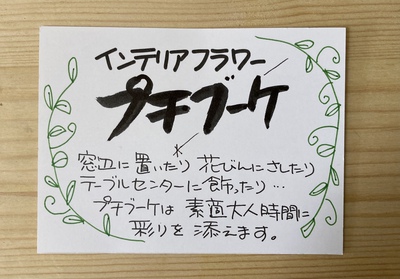 インテリアフラワー
プチブーケ
窓皿に置いたり 花びんにさしたり
テーブルセンターに飾ったり…
プチブーケは 素適大人時間に
彩りを 添えます。